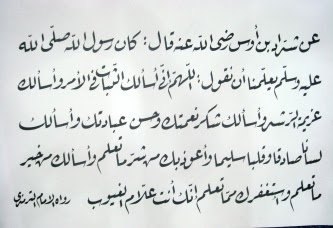 عن شدّاد بن أوس رضي الله عنه قال: كان رسول الله صلّى الله
عليه وسلّم يعلّمنا أن نقول: اللهمّ إنّي أسألك الثّبات في الأمر وأسألك
عزيمة الرّشد وأسألك شكر نعمتك وحسن عبادتك وأسألك
لسانًا صادقًا وقلبا سليما وأعوذ بك من شرّ ما تعلم وأسألك من خير
ما تعلم وأستغفرك ممّا تعلم إنّك أنت علّام الغيوب رواه الإمام الترمذي